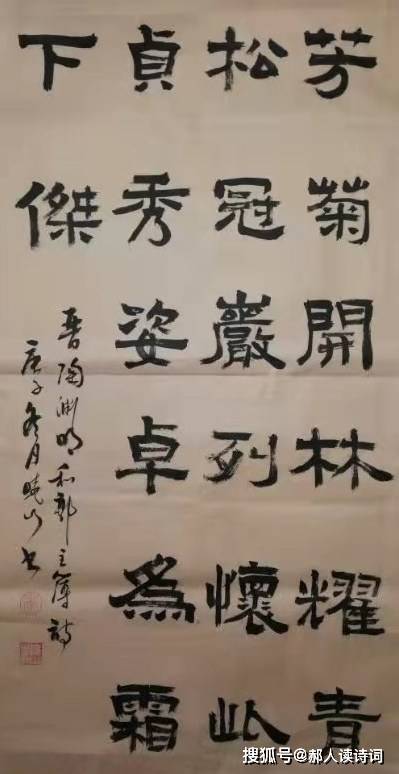 芳菊開林耀青
松冠巖列懷此
貞秀姿卓為霜
下傑
晉陶淵明和郭主簿詩
庚子冬月曉山书
搜狐号@郝人读诗词